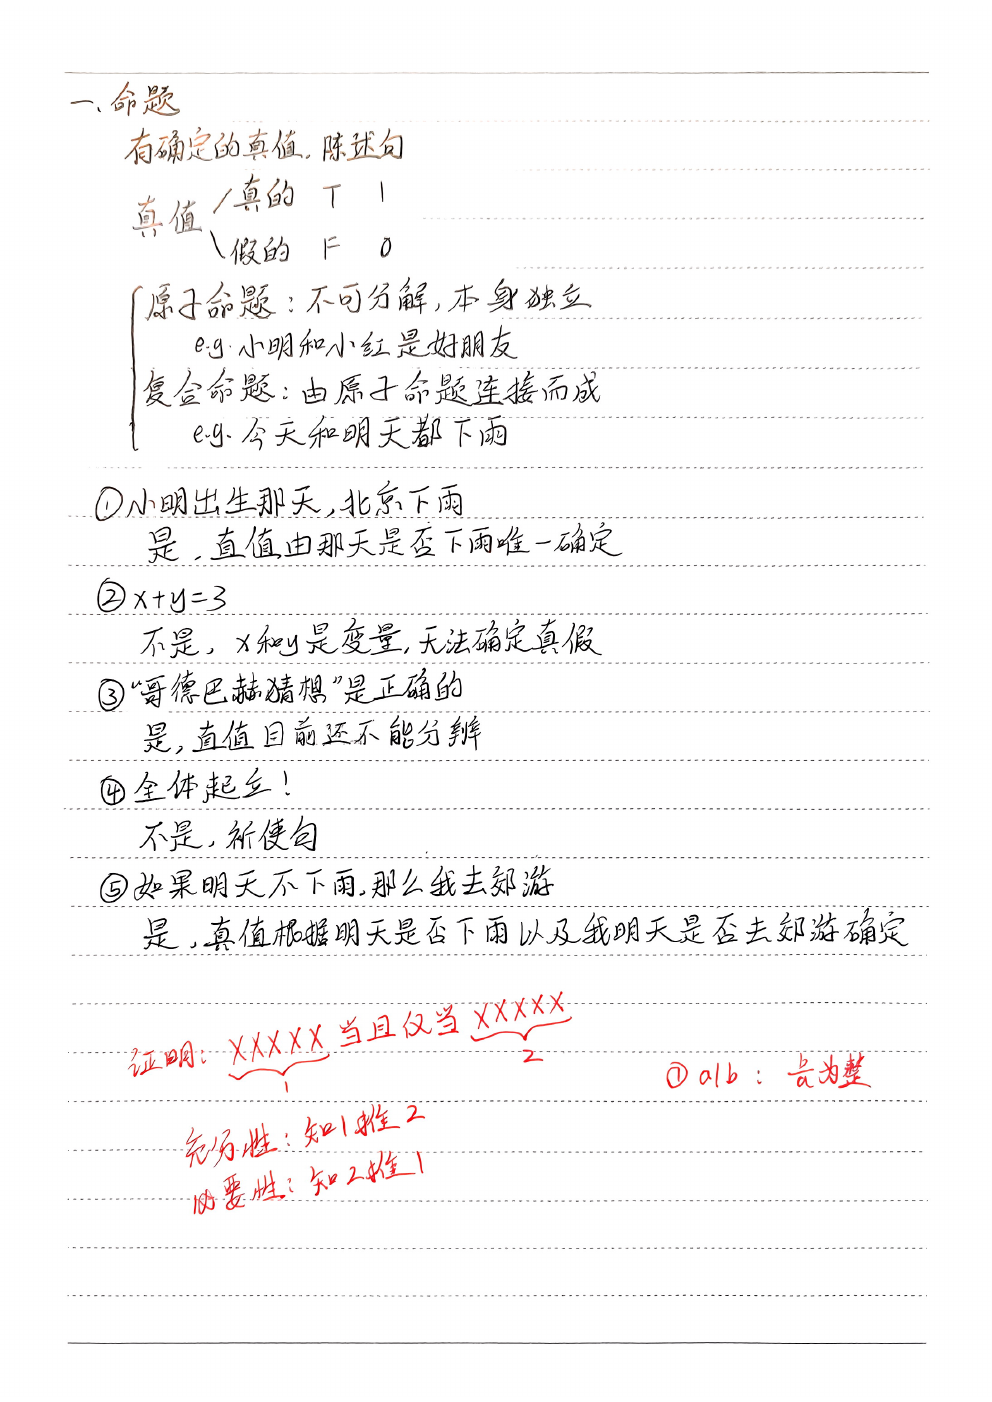 一、命题
有确定的真值，陈述句
真值
真的 T 1
假的 F 0
原子命题：不可分解，本身独立
e.g. 小明和小红是好朋友
复合命题：由原子命题连接而成
e.g. 今天和明天都下雨
①小明出生那天，北京下雨
是，真值由那天是否下雨唯一确定
②x+y=3
不是，x和y是变量，无法确定真假
③“哥德巴赫猜想”是正确的
是，真值目前还不能分辨
④全体起立！
不是，祈使句
⑤如果明天不下雨，那么我去郊游
是，真值根据明天是否下雨以及我明天是否去郊游确定
证明：XXXXX 当且仅当 XXXXX
1 2
①a|b：b/a为整
充分性：知1推2
必要性：知2推1